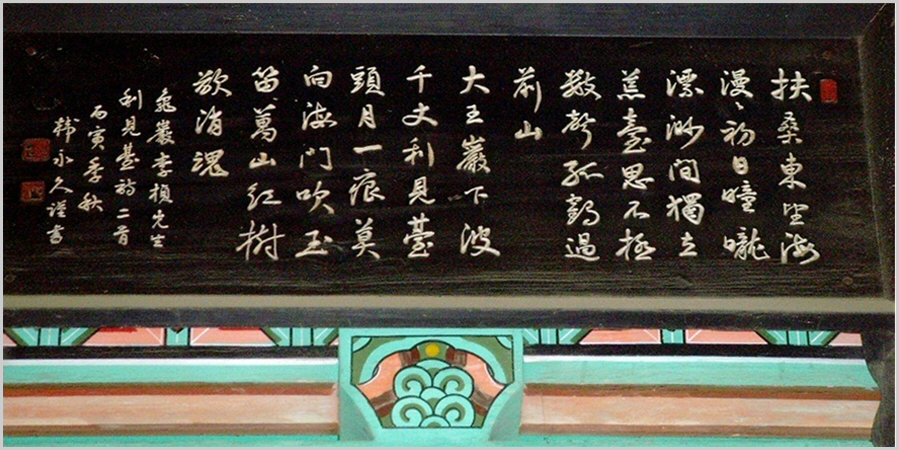 扶桑東望海
漫〻初日曈曨
漂渺間獨立
臺思不極
數聲孤鶴過
前山
大王巖下波
千丈利見臺
頭月一痕莫
向海門吹玉
笛萬山紅樹
欲消魂
龜巖李楨先生
利見臺詩二首
丙寅季秋
韓永久謹書